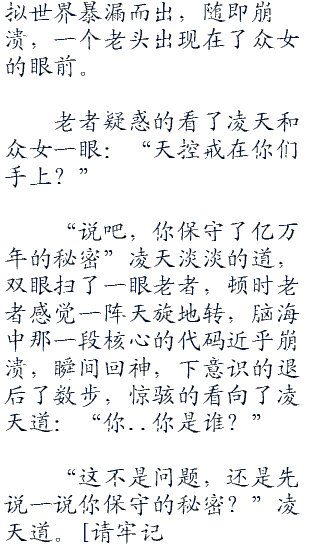 拟世界暴漏而出，随即崩
溃，一个老头出现在了众女
的眼前。
老者疑惑的看了凌天和
众女一眼：“天控戒在你们
手上？”
“说吧，你保守了亿万
年的秘密”凌天淡淡的道，
双眼扫了一眼老者，顿时老
者感觉一阵天旋地转，脑海
中那一段核心的代码近乎崩
溃，瞬间回神，下意识的退
后了数步，惊骇的看向了凌
天道：“你..你是谁？”
“这不是问题，还是先
说一说你保守的秘密？”凌
天道。[请牢记